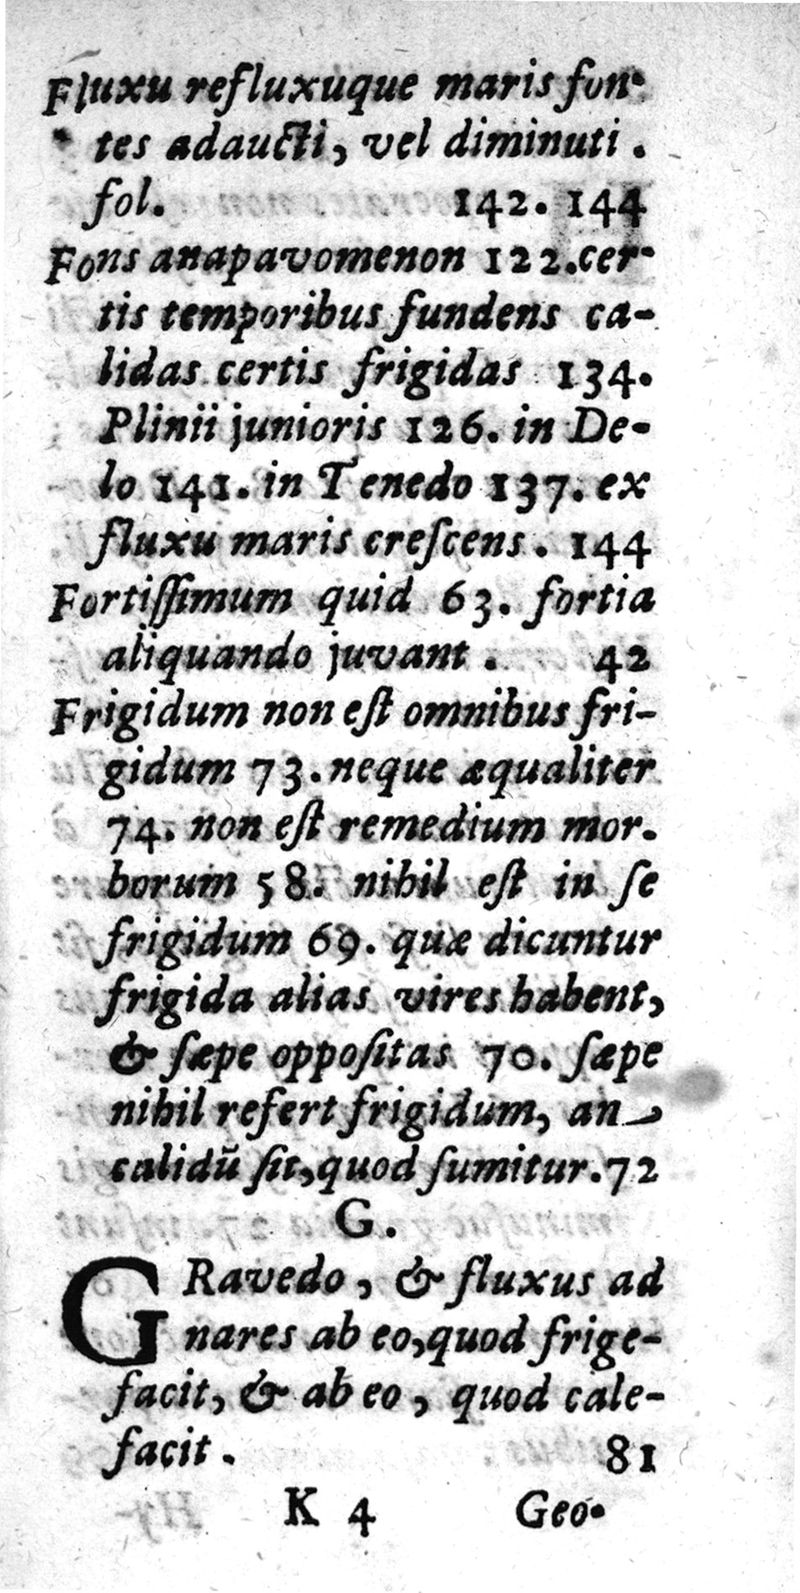 Fluxu refluxuque maris fon-
tes adaucti, vel diminuti.
fol. 142. 144
Fons anapavomenon 122. cer-
tis temporibus fundens ca-
lidas certis frigidas 134.
Plinii junioris 126. in De-
lo 141. in Tenedo 137. ex
fluxu maris creſcens. 144
Fortiſſimum quid 63. fortia
aliquando juvant. 42
Frigidum non eſt omnibus fri-
gidum 73. neque æqualiter
74. non eſt remedium mor-
borum 58. nihil eſt in ſe
frigidum 69. quæ dicuntur
frigida alias vires habent,
& ſæpe oppoſitas 70. ſæpe
nihil refert frigidum, an
calidū ſit, quod ſumitur. 72
G.
GRavedo, & fluxus ad
nares ab eo, quod frige-
facit, & ab eo, quod cale-
facit. 81
K 4 Geo-